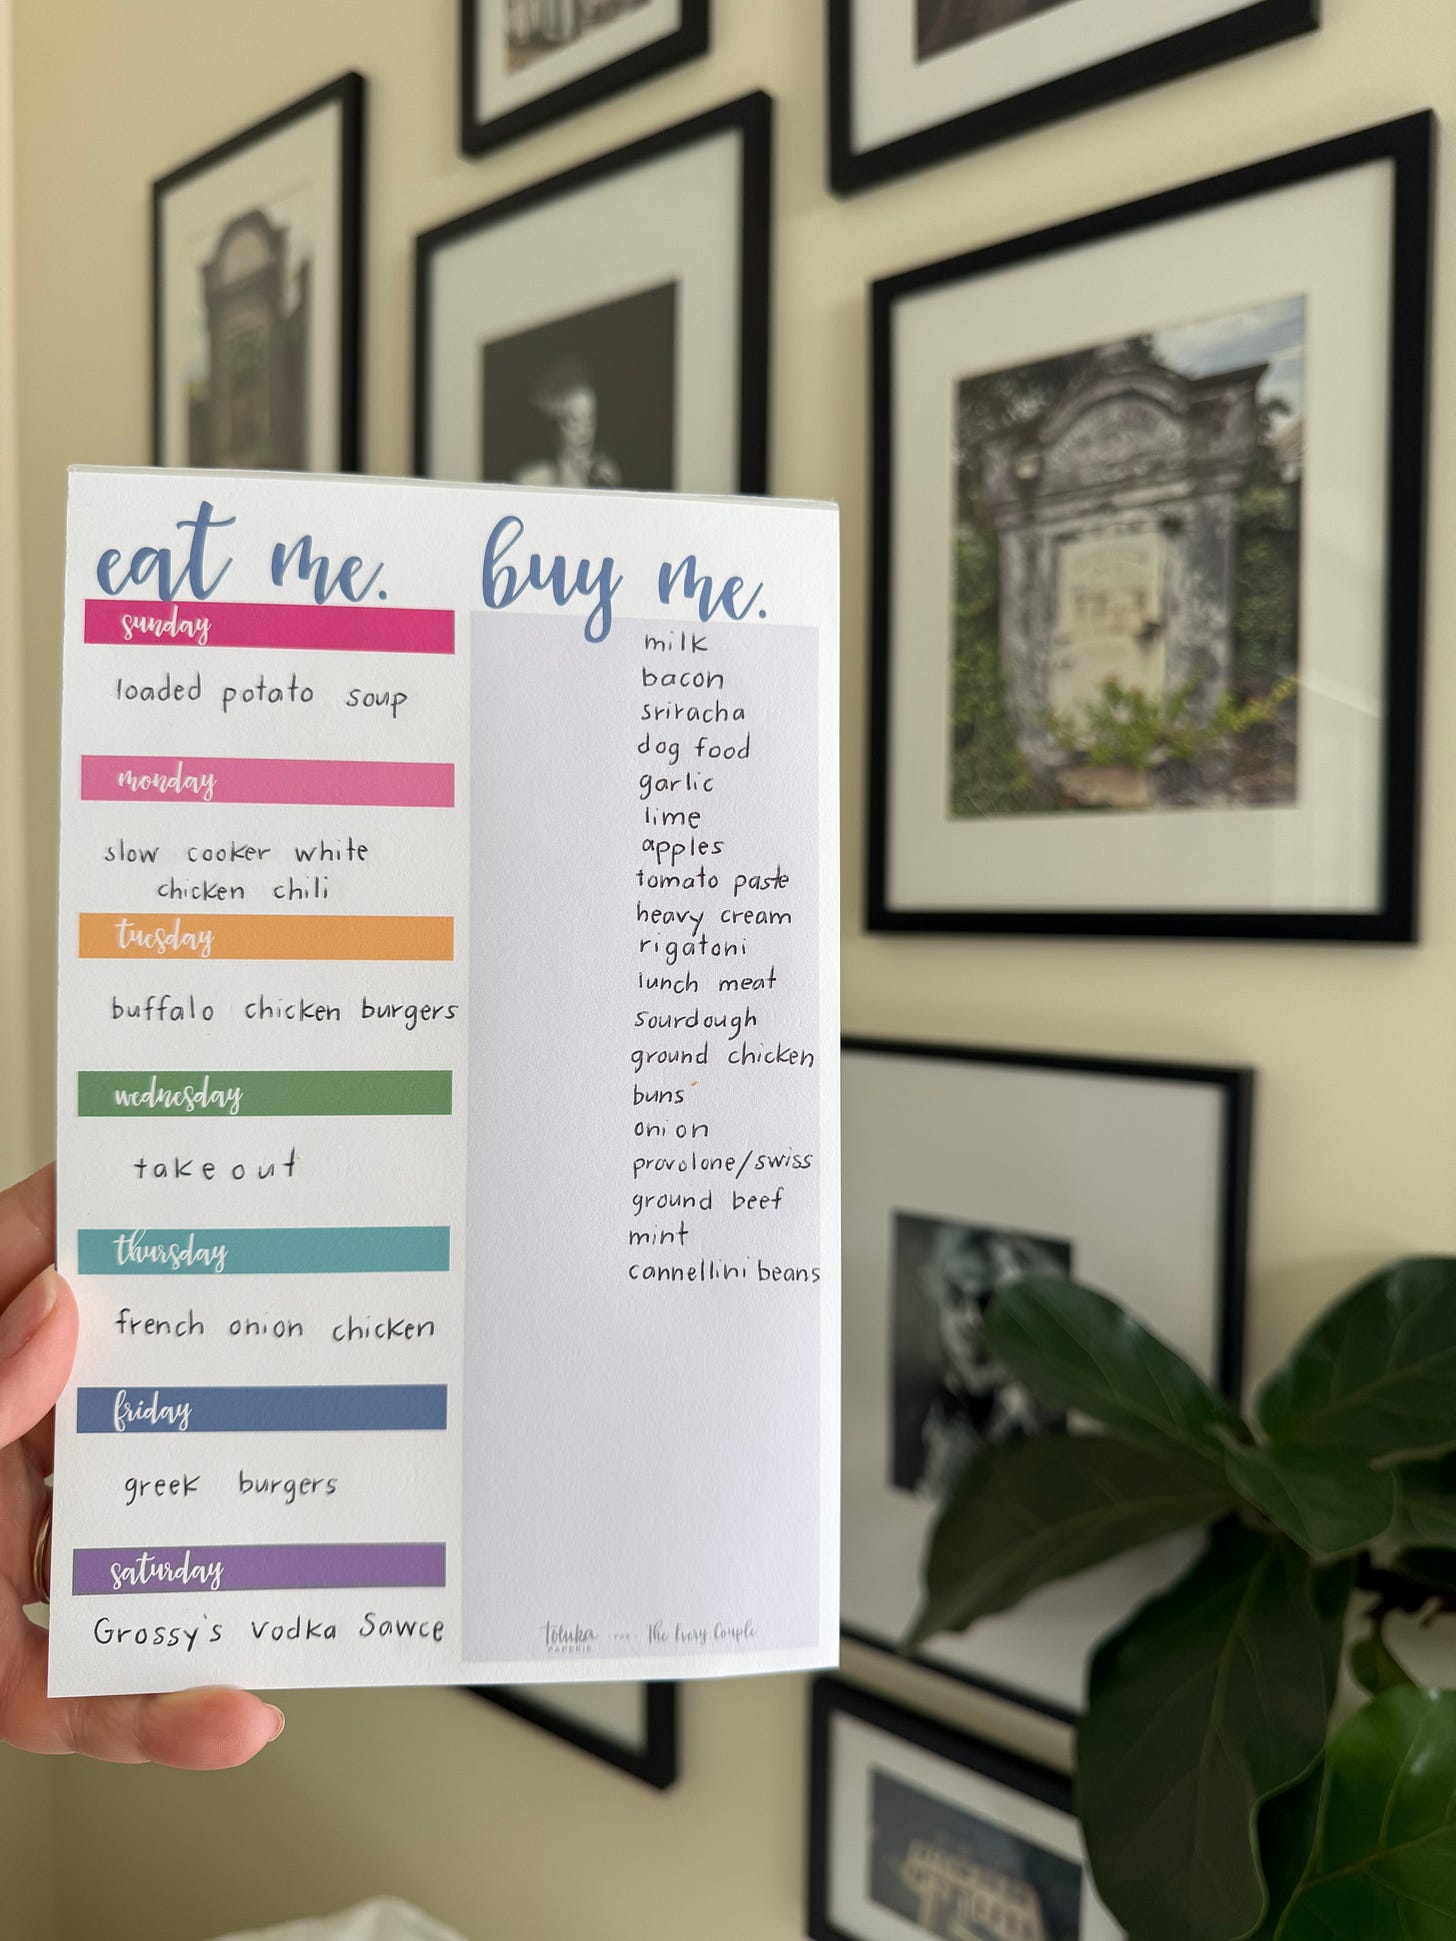 eat me.
sunday
loaded potato soup
monday
slow cooker white
chicken chili
tuesday
buffalo chicken burgers
wednesday
takeout
thursday
french onion chicken
friday
greek burgers
saturday
Grossy's vodka Sawce
buy me.
milk
bacon
sriracha
dog food
garlic
lime
apples
tomato paste
heavy cream
rigatoni
lunch meat
sourdough
ground chicken
buns
onion
provolone/swiss
ground beef
mint
cannellini beans
toluka PAPERIE FOR The Every Couple